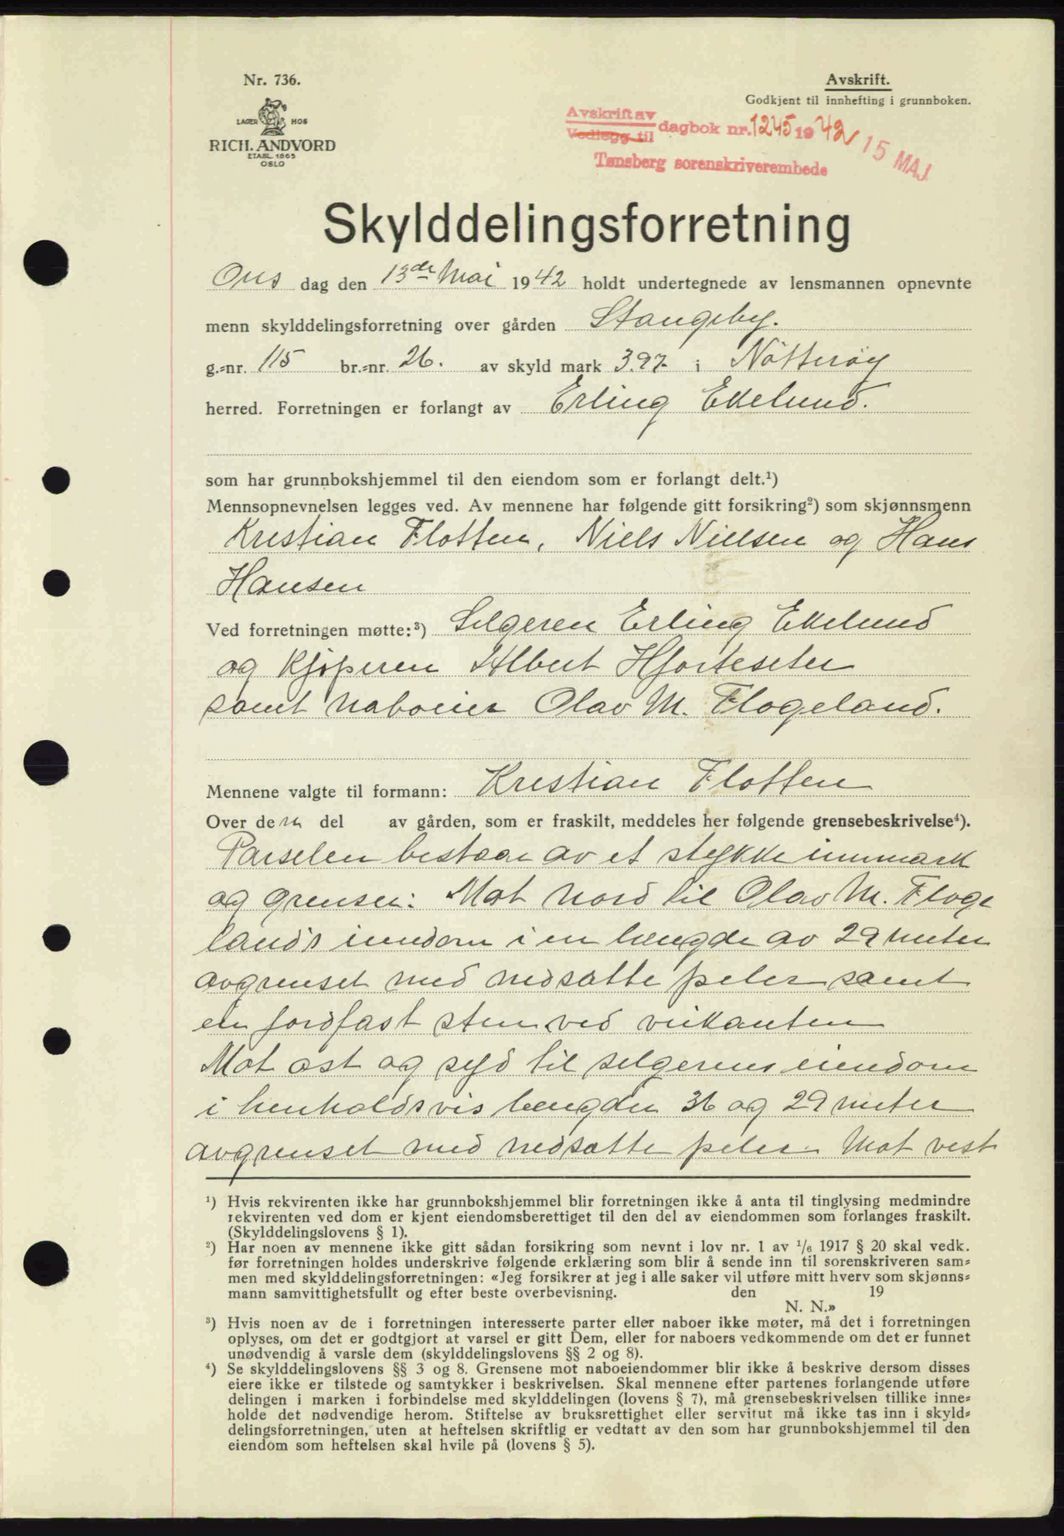 Nr. 736.
LAGER HOS
RICH. ANDVORD
ETABL. 1865
OSLO
Avskrift.
Godkjent til innhefting i grunnboken.
Avskrift av
Vedlegg til dagbok nr. 1245 1942 15 MAJ.
Tønsberg sorenskriverembede
Skylddelingsforretning
Ons dag den 13de Mai 1942 holdt undertegnede av lensmannen opnevnte
menn skylddelingsforretning over gården Stangeby.
g.=nr. 115 br.=nr. 26. av skyld mark 3.97 i Nötterøy
herred. Forretningen er forlangt av Erling Ekelund.
som har grunnbokshjemmel til den eiendom som er forlangt delt.¹)
Mennsopnevnelsen legges ved. Av mennene har følgende gitt forsikring²) som skjønnsmenn
Kristian Flotten, Niels Nielsen og Hans
Hansen
Ved forretningen møtte:³) Selgeren Erling Ekelund
og Kjøperen Albert Hjorteseter
samt naboeier Olav M. Flogeland.
Mennene valgte til formann: Kristian Flotten
Over den del av gården, som er fraskilt, meddeles her følgende grensebeskrivelse⁴).
Parselen bestaar av et stykke innmark
og grenser: Mot nord til Olav M. Floge
lands eiendom i en længde av 29 meter
avgrenset med nedsatte peler samt
en jordfast sten ved veikanten
Mot øst og syd til selgerens eiendom
i henholdsvis længden 36 og 29 meter
avgrenset med nedsatte peler Mot vest
¹) Hvis rekvirenten ikke har grunnbokshjemmel blir forretningen ikke å anta til tinglysing medmindre
rekvirenten ved dom er kjent eiendomsberettiget til den del av eiendommen som forlanges fraskilt.
(Skylddelingslovens § 1).
²) Har noen av mennene ikke gitt sådan forsikring som nevnt i lov nr. 1 av ¹/₆ 1917 § 20 skal vedk.
før forretningen holdes underskrive følgende erklæring som blir å sende inn til sorenskriveren sam=
men med skylddelingsforretningen: «Jeg forsikrer at jeg i alle saker vil utføre mitt hverv som skjønns=
mann samvittighetsfullt og efter beste overbevisning. den 19
N. N.»
³) Hvis noen av de i forretningen interesserte parter eller naboer ikke møter, må det i forretningen
oplyses, om det er godtgjort at varsel er gitt Dem, eller for naboers vedkommende om det er funnet
unødvendig å varsle dem (skylddelingslovens §§ 2 og 8).
⁴) Se skylddelingslovens §§ 3 og 8. Grensene mot naboeiendommer blir ikke å beskrive dersom disses
eiere ikke er tilstede og samtykker i beskrivelsen. Skal mennene efter partenes forlangende utføre
delingen i marken i forbindelse med skylddelingen (lovens § 7), må grensebeskrivelsen tillike inne=
holde det nødvendige herom. Stiftelse av bruksrettighet eller servitut må ikke tas inn i skyld=
delingsforretningen, uten at heftelsen skriftlig er vedtatt av den som har grunnbokshjemmel til den
eiendom som heftelsen skal hvile på (lovens § 5).